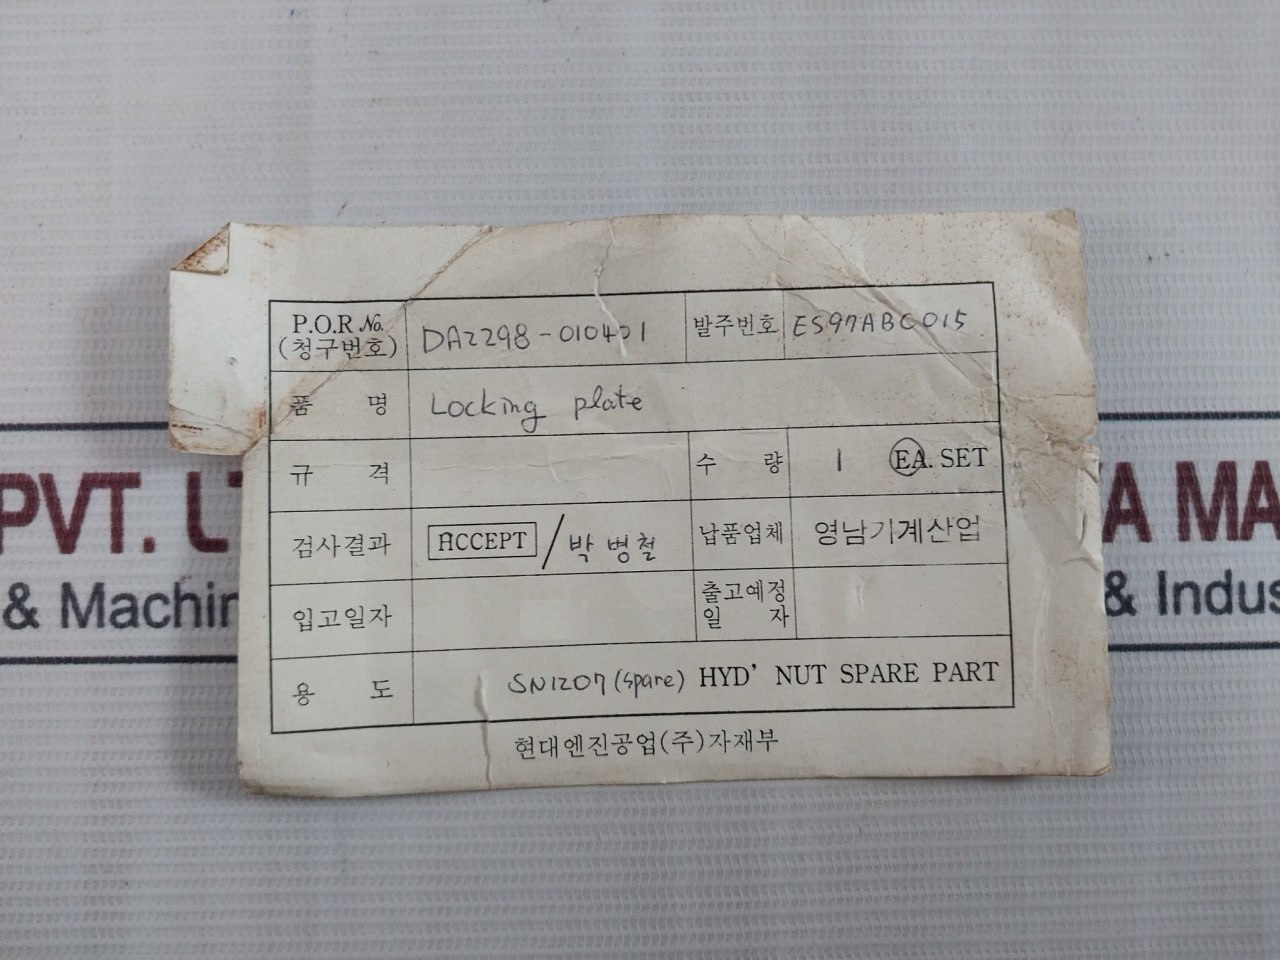 P.O.R No. (청구번호) DA2298-010401 발주번호 ES97ABC015
품 명 Locking plate
규 격 수 량 1 EA. SET
검사결과 ACCEPT / 박병철 납품업체 영남기계산업
입고일자 출고예정일 자
용 도 SN1207 (spare) HYD' NUT SPARE PART
현대엔진공업(주)자재부
PVT. A MA
& Machin & Indus